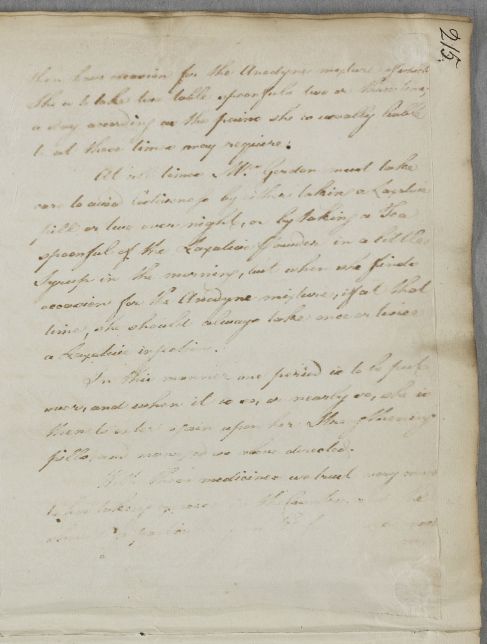 215.
then have occasion for the Anodyne mixture of which
She is to take two table spoonfuls two or three times
a day according as the pains she is usually liable
to at these times may require.
At all times Mrs Gordon must take
care to avoid Costiveness by either taking a Laxative
pill or two over night, or by taking a Tea
spoonful of the Laxative Powder in a little
Syrup in the morning, but when she finds
occasion for the Anodyne mixture, if at that
time, she should always take once or twice
a Laxative injection.
In this manner one period is to be pass
over, and when it is so, or nearly so, she is
then to enter again upon her
pills, and so on as we have directed.
With these medicines we trust very
to her taking